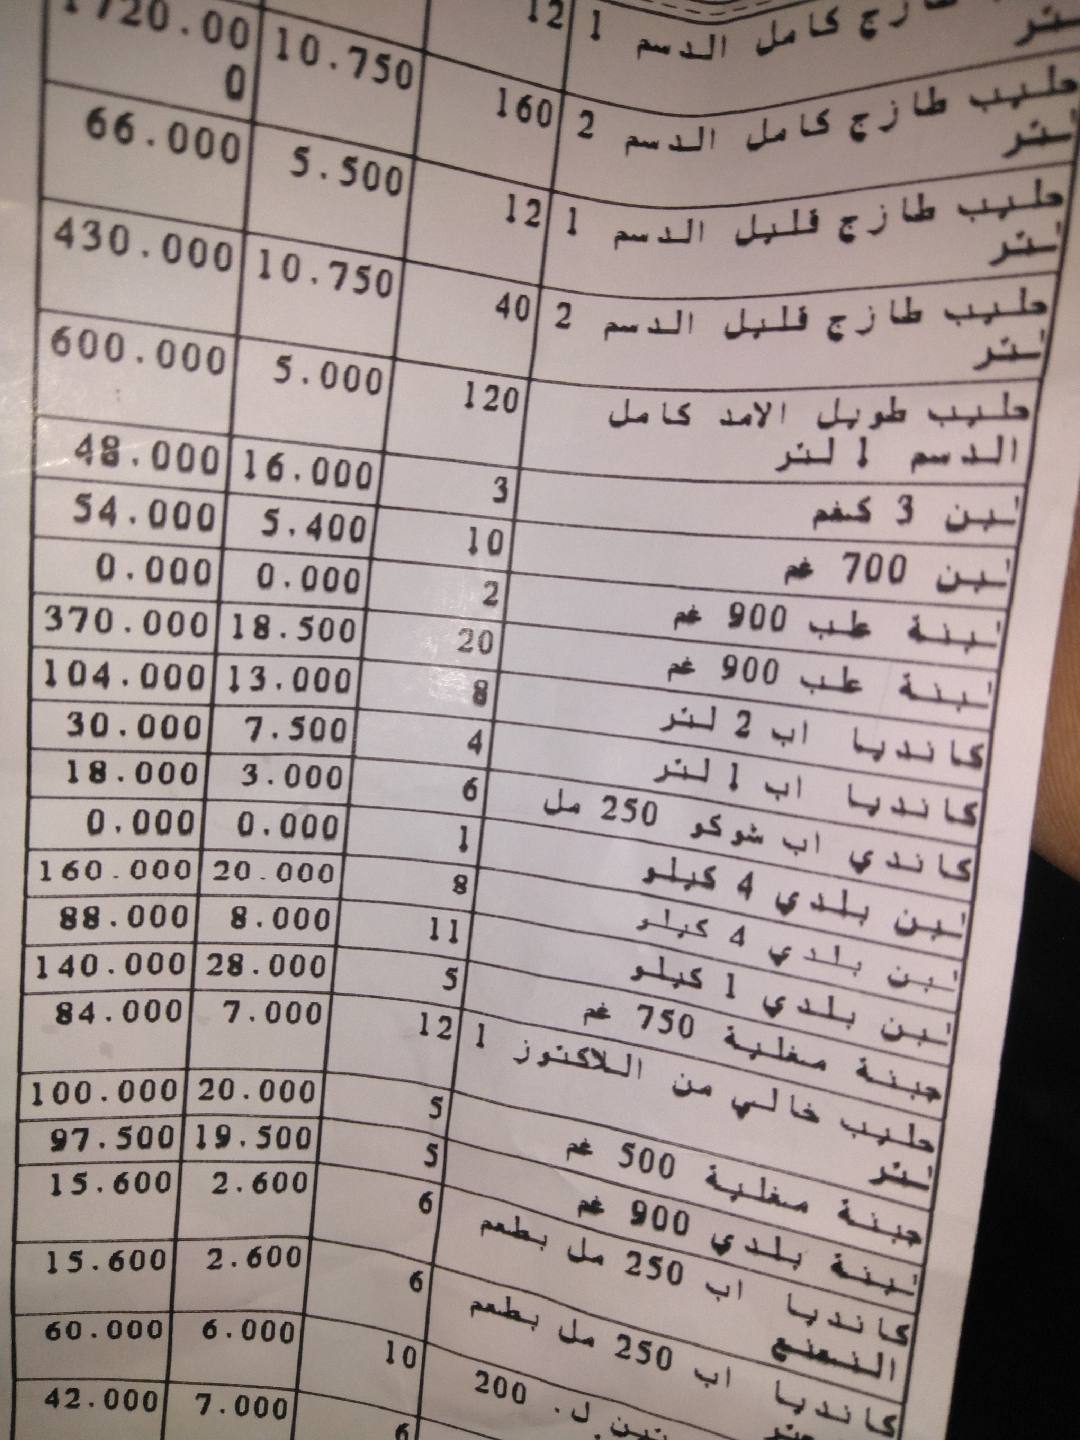 طازج كامل الدسم 1 12
لتر
حليب طازج كامل الدسم 2 160 10.750 1720.00
لتر 0
حليب طازج قليل الدسم 1 12 5.500 66.000
لتر
حليب طازج قليل الدسم 2 40 10.750 430.000
لتر
حليب طويل الامد كامل 120 5.000 600.000
الدسم 1 لتر
لبن 3 كغم 3 16.000 48.000
لبن 700 غم 10 5.400 54.000
لبنة علب 900 غم 2 0.000 0.000
لبنة علب 900 غم 20 18.500 370.000
كانديا اب 2 لتر 8 13.000 104.000
كانديا اب 1 لتر 4 7.500 30.000
كاندي اب شوكو 250 مل 6 3.000 18.000
لبن بلدي 4 كيلو 1 0.000 0.000
لبن بلدي 4 كيلو 8 20.000 160.000
لبن بلدي 1 كيلو 11 8.000 88.000
جبنة مغلية 750 غم 5 28.000 140.000
حليب خالي من اللاكتوز 1 12 7.000 84.000
لتر
جبنة مغلية 500 غم 5 20.000 100.000
لبنة بلدي 900 غم 5 19.500 97.500
كانديا اب 250 مل بطعم 6 2.600 15.600
النعنع
كانديا اب 250 مل بطعم 6 2.600 15.600
ل. 200 10 6.000 60.000
6 7.000 42.000